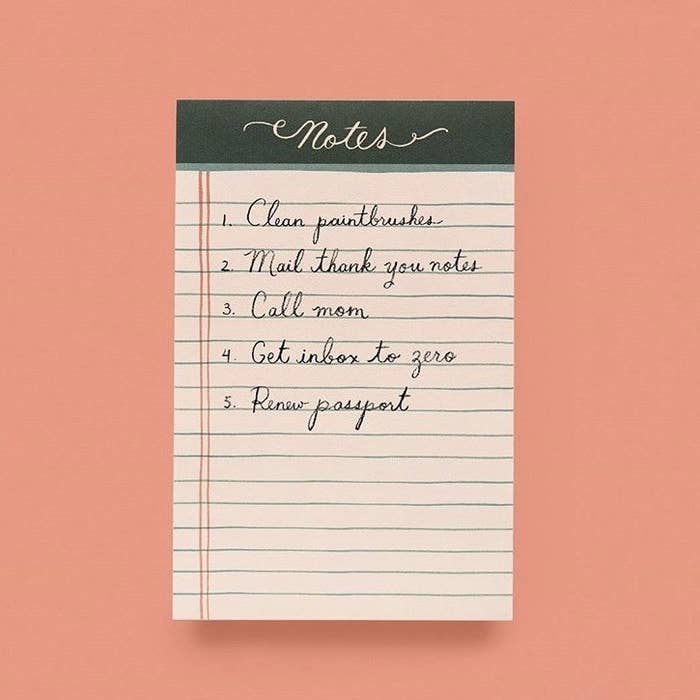 Notes
1. Clean paintbrushes
2. Mail thank you notes
3. Call mom
4. Get inbox to zero
5. Renew passport